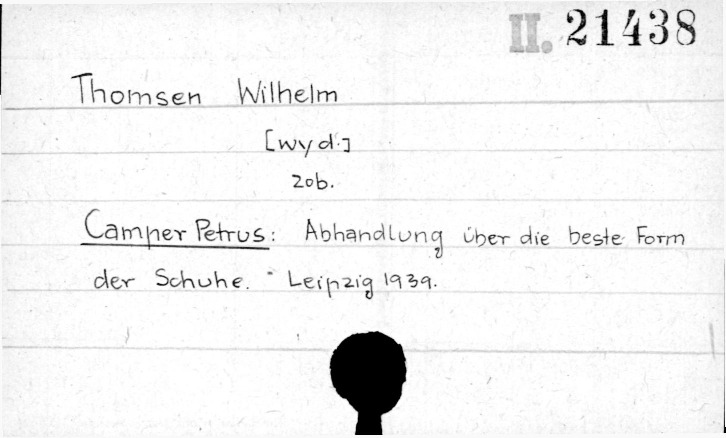 II. 21438
Thomsen Wilhelm
[wyd.]
zob.
Camper Petrus: Abhandlung über die beste Form
der Schuhe. - Leipzig 1939.